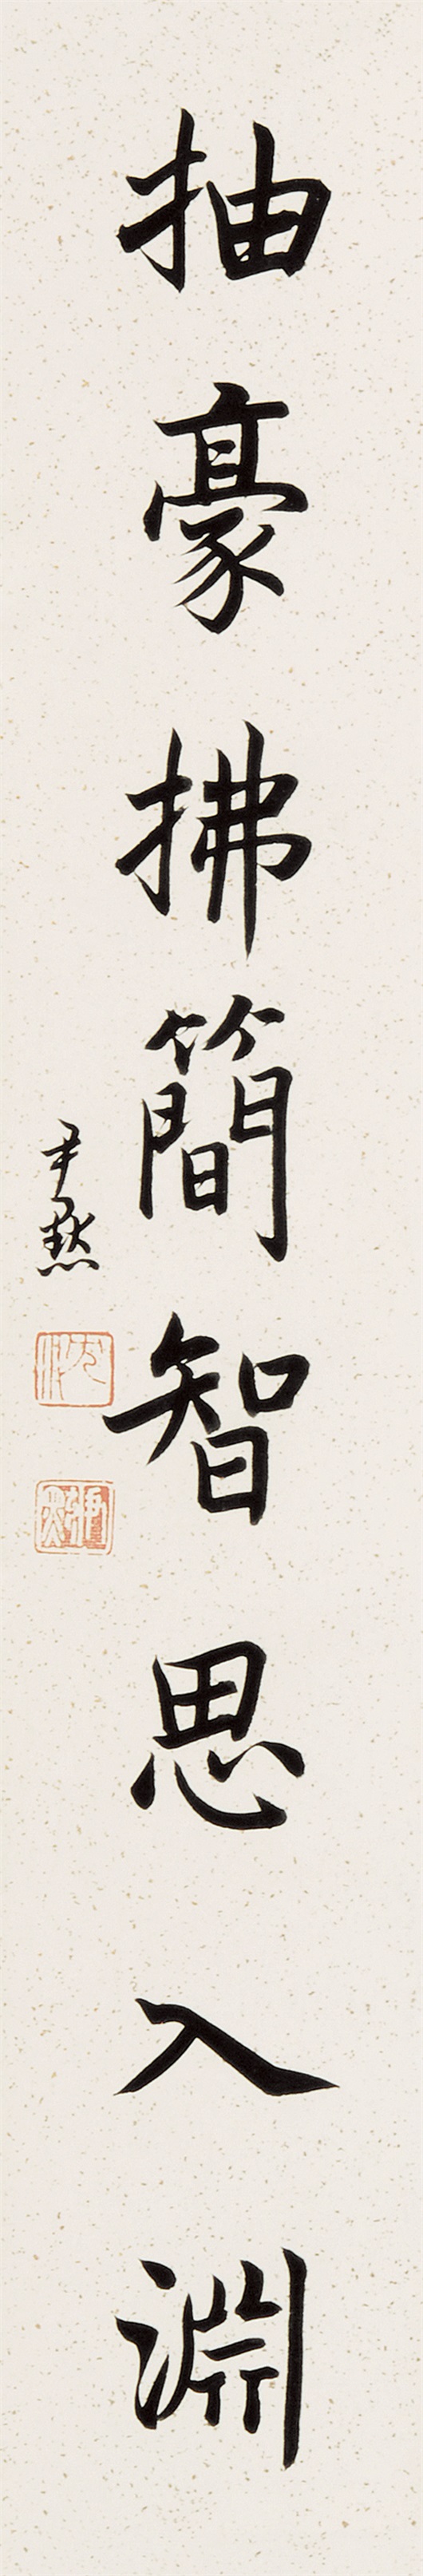 抽豪拂簡智思入淵
尹默